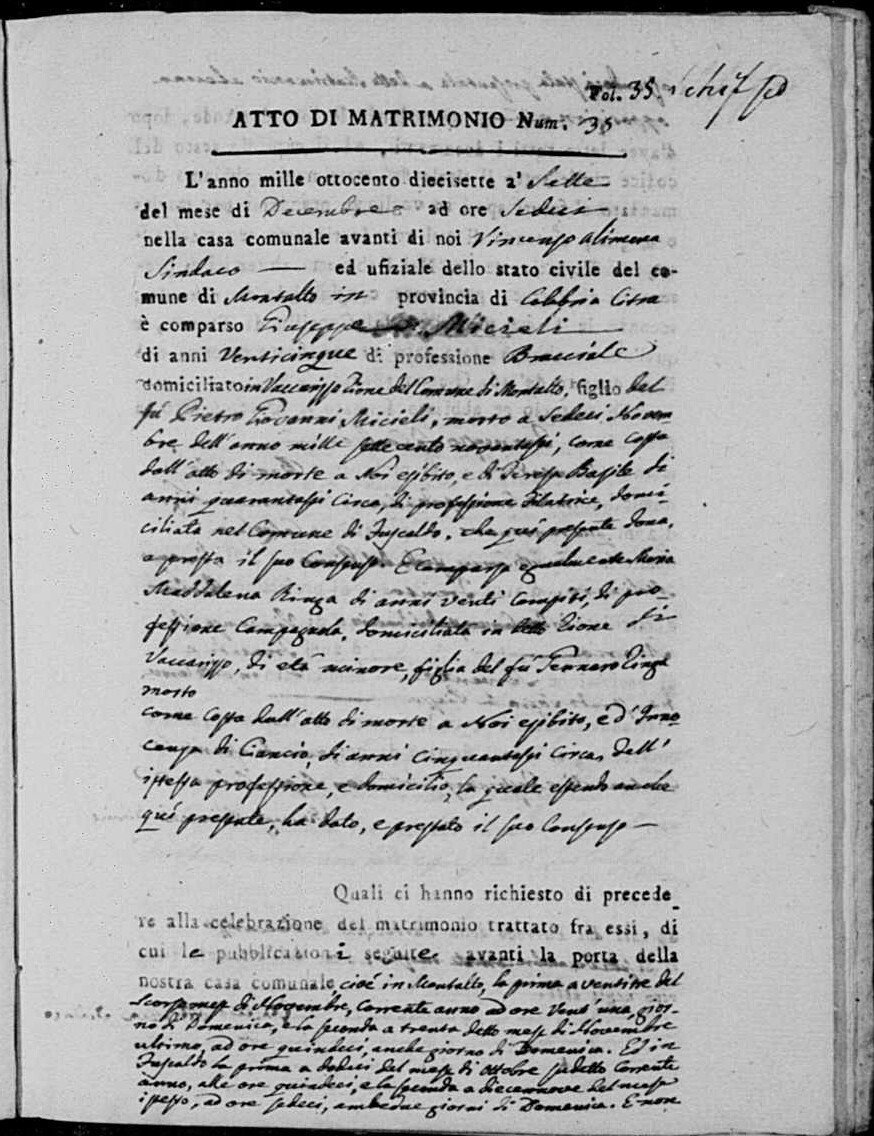 Fol. 35
ATTO DI MATRIMONIO Num. 35
L'anno mille ottocento diecisette a' Sette
del mese di Decembre ad ore Sedeci
nella casa comunale avanti di noi Vincenzo Alimena
Sindaco — ed ufiziale dello stato civile del co-
mune di Montalto in provincia di Calabria Citra
è comparso Giuseppe Micieli
di anni Venticinque di professione Bracciale
domiciliato in Vaccarizzo Rione del Comune di Montalto, figlio del
fù Pietro Giovanni Micieli, morto a Sedeci Novem-
bre dell'anno mille settecento novantassi, come costa
dall'atto di morte a Noi esibito, e di Teresa Basile di
anni quarantassi circa, di professione Filatrice, domi-
ciliata nel Comune di Fuscaldo, che quì presente dona,
e presta il suo Consenso. E comparsa egualmente Maria
Maddalena Ringa di anni venti compiti, di pro-
fessione Campagnola, domiciliata in detto Rione di
Vaccarizzo, di età minore, figlia del fù Gennaro Ringa
morto
come costa dall'atto di morte a Noi esibito, e d'Inno-
cenza di Ciancio, di anni cinquantassi circa, dell'
istessa professione, e domicilio, la quale essendo anche
quì presente, ha dato, e prestato il suo Consenso —
Quali ci hanno richiesto di precede
re alla celebrazione del matrimonio trattato fra essi, di
cui le pubblicazioni seguite avanti la porta della
nostra casa comunale, cioè in Montalto, la prima a ventitre del
scorso mese di Novembre, corrente anno ad ore vent'una, gior-
no di Domenica, e la seconda a trenta detto mese di Novembre
ultimo, ad ore quindeci, anche giorno di Domenica. Ed in
Fuscaldo la prima a dodeci del mese di Ottobre sudetto corrente
anno, alle ore quindeci, e la seconda a diecennove del mese
istesso, ad ore sedeci, ambedue giorni di Domenica. E non